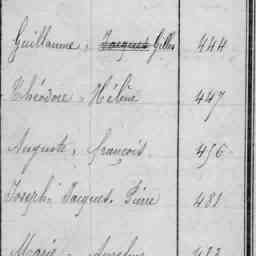 Guillaume, Jacques Gilles 444
Théodore, Hélène 447
Auguste, françois. 456
Joseph, Jacques, Pierre 481
Marie, 483